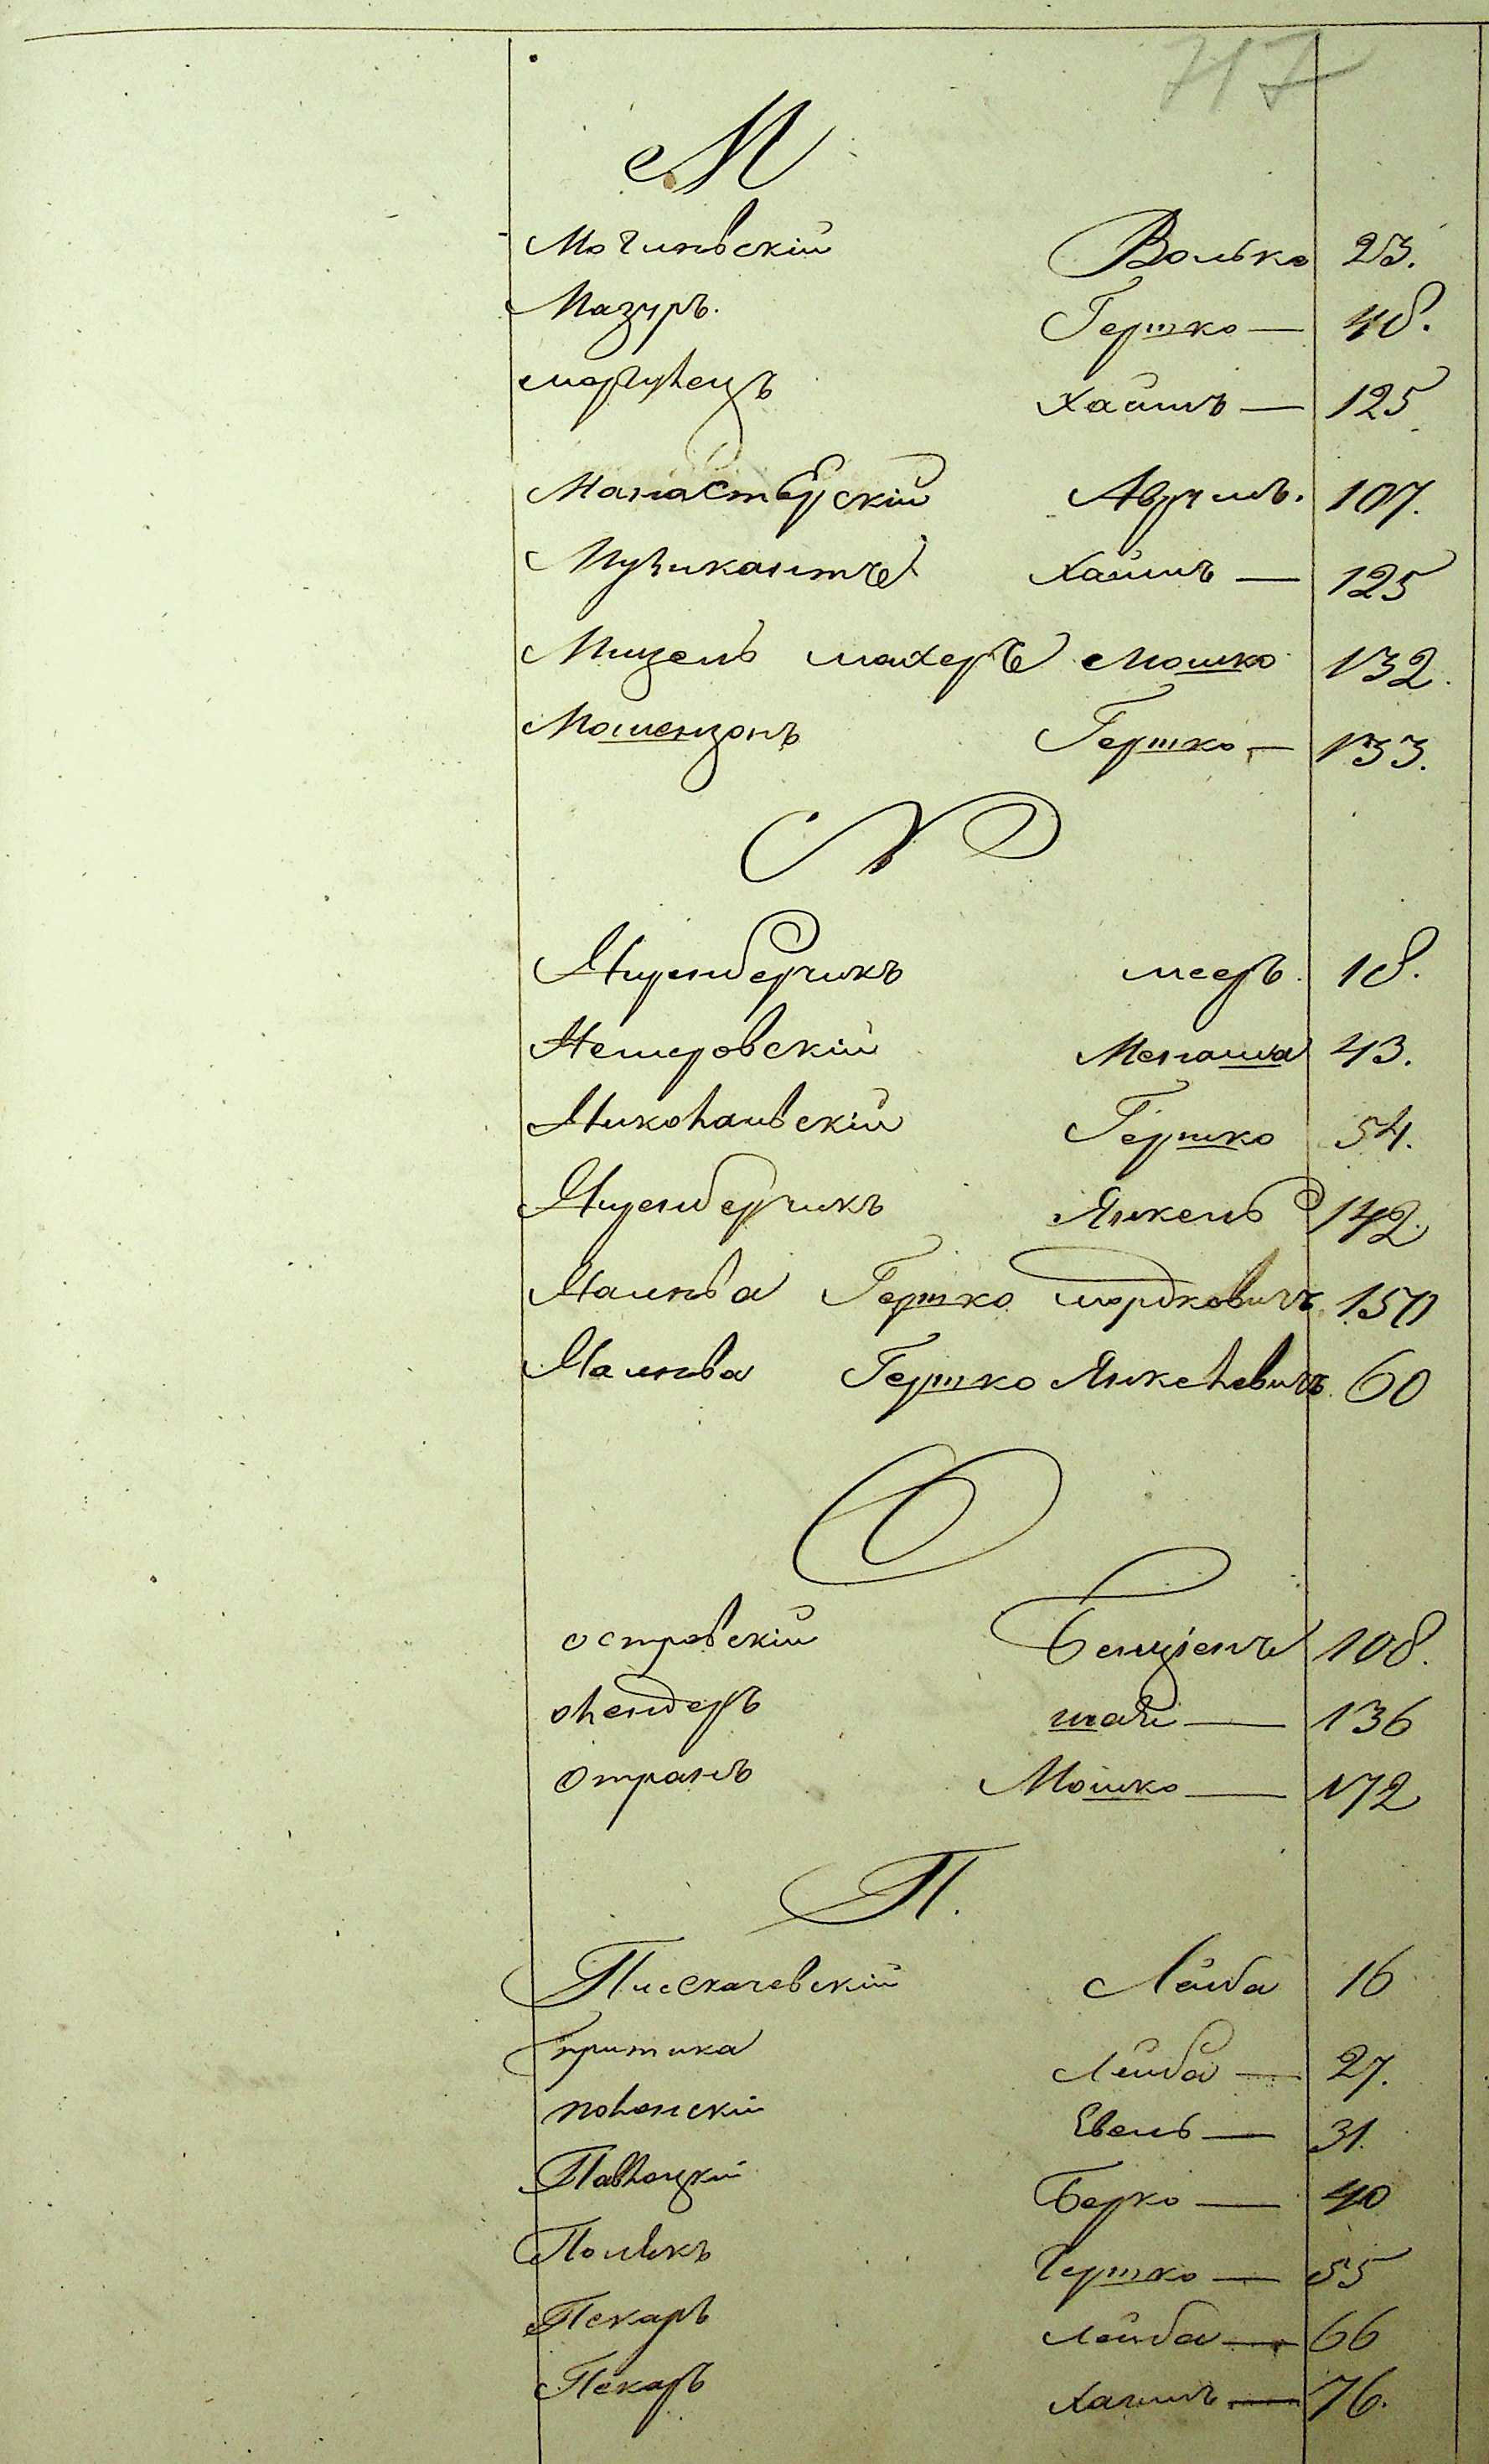 717
М
Могилевскій Волько 23.
Мазуръ. Гершко — 48.
Хаимъ — 125
Манастерскій Аврумъ. 107.
Музикантъ Хаимъ — 125
Мицель махеръ Мошко 132.
Мошензонъ Гершко — 133.
Н
Ниренберчикъ Мееръ. 18.
Немеровскій Менаша 43.
Николаевскій Гершко 54.
Ниренберчикъ Янкель 142.
Гершко Мордковичъ 150
Гершко Янкелевичъ 60
О
Островскій Бенціенъ 108.
олендеръ шая — 136
Отранъ Мошко — 172
П.
Плескачевскій Лейба 16
притика Лейба — 27.
поланскій Евель — 31.
Павлоцкій Берко — 40
Полякъ Гершко — 55
Пекаръ Лейба — 66
Пекаръ Хаимъ — 76.